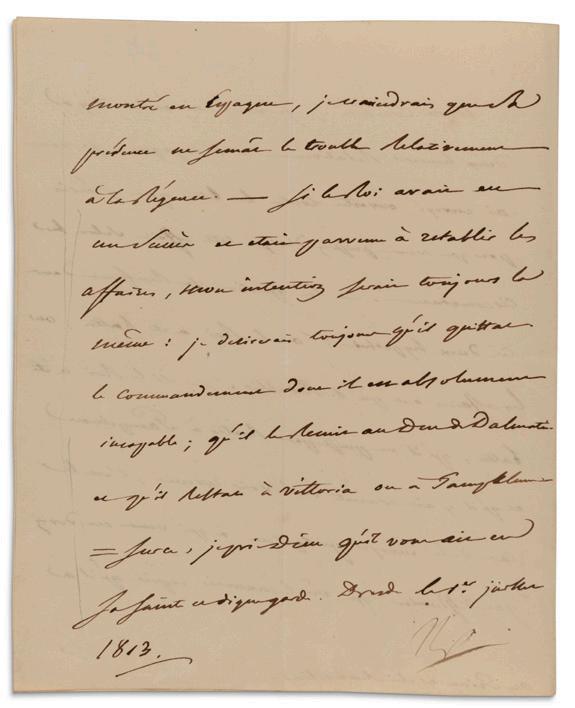 montré en Espagne, je craindrais que sa
présence ne semât le trouble relativement
à la Régence. — Si le Roi avait eu
un succès et était parvenu à rétablir les
affaires, mon intention serait toujours la
même : je désirerais toujours qu'il quittât
le commandement dont il est absolument
incapable ; qu'il le remit au Duc de Dalmatie
et qu'il restât à Vittoria ou à Pampelune
= Sur ce, je prie Dieu qu'il vous ait en
Sa Sainte et digne garde. Dresde le 1er juillet
1813.